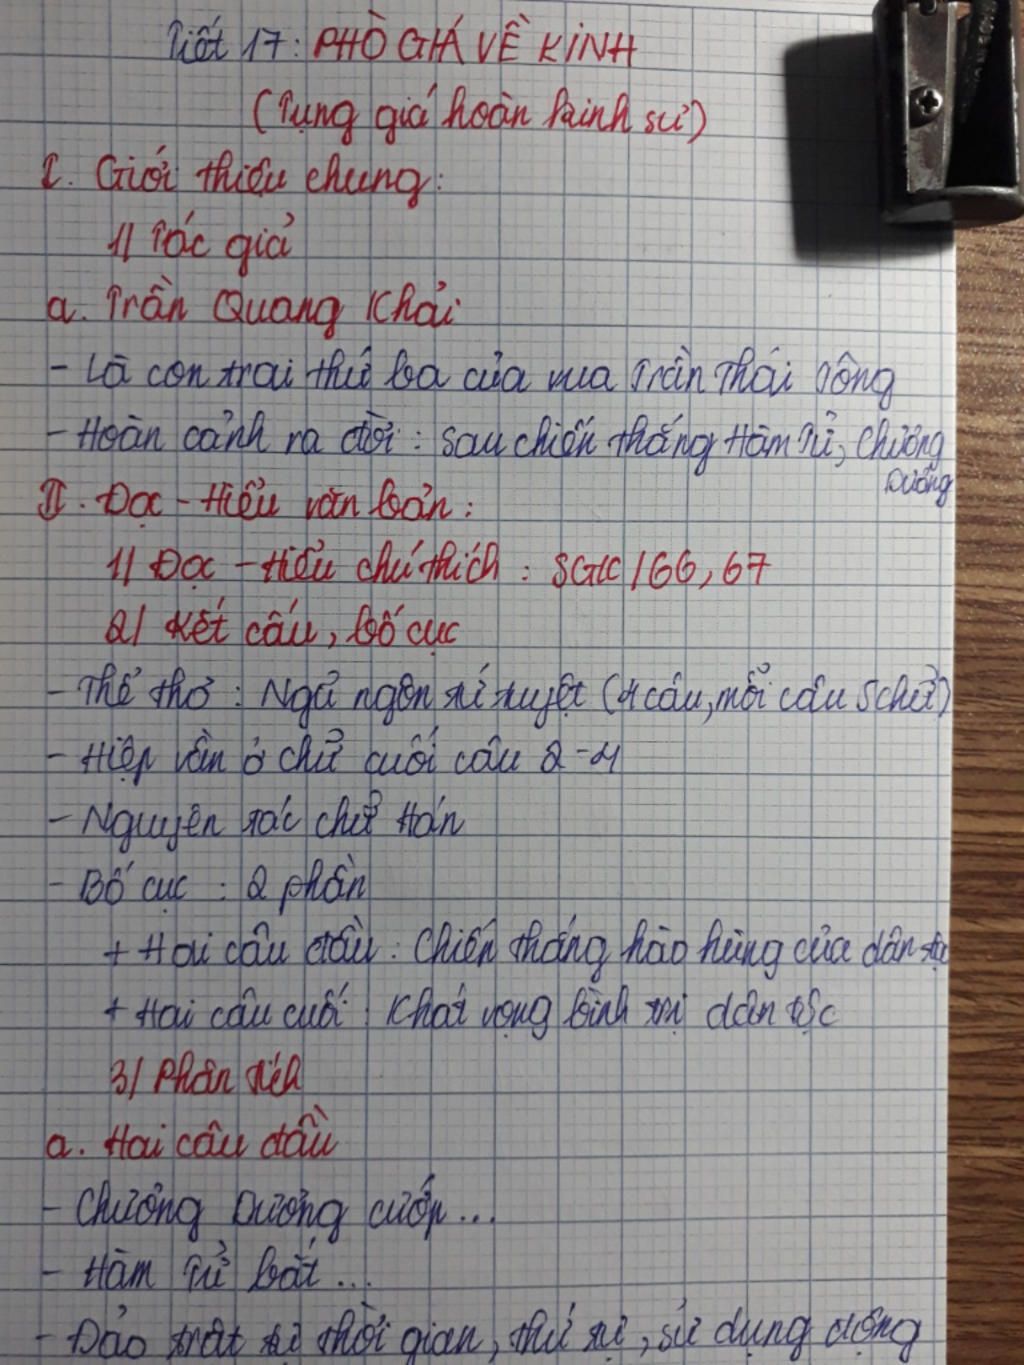 Tiết 17: PHÒ GIÁ VỀ KINH
(Tụng giá hoàn kinh sư)
I. Giới thiệu chung:
1/ Tác giả
a. Trần Quang Khải
- Là con trai thứ ba của vua Trần Thái Tông
- Hoàn cảnh ra đời: sau chiến thắng Hàm Tử, Chương
Dương
II. Đọc - Hiểu văn bản:
1/ Đọc - Hiểu chú thích: SGK/66, 67
2/ Kết cấu, bố cục
- Thể thơ: Ngũ ngôn tứ tuyệt (4 câu, mỗi câu 5 chữ)
- Hiệp vần ở chữ cuối câu 2-4
- Nguyên tác chữ Hán
- Bố cục: 2 phần
+ Hai câu đầu: Chiến thắng hào hùng của dân tộc
+ Hai câu cuối: Khát vọng bình trị dân tộc
3/ Phân tích
a. Hai câu đầu
- Chương Dương cướp...
- Hàm Tử bắt...
- Đảo trật tự thời gian, thứ tự, sử dụng động